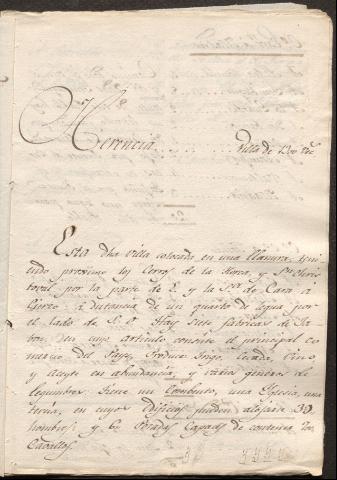 Herencia. Villa de 1300 Vec.
Esta dha villa colocada en una llanura, tini
endo proximo los Cerros de la Horca, y Sn. Chris
toval por la parte de E. y la de Cara a
a distancia de un quarto de legua por
el lado de S. O. Hay siete fabricas de Ja-
bon, en cuyo articulo consiste el principal Co
mercio del Pays, Produce trigo, Cevada, Vino,
y Aceyte en abundancia, y varios generos de
legumbres. Tiene un Combento, una Yglesia, una
en cuyos Edificios pueden alojarse 3D
hombres; y 62 Posadas Capaces de contener 200
Cavallos.